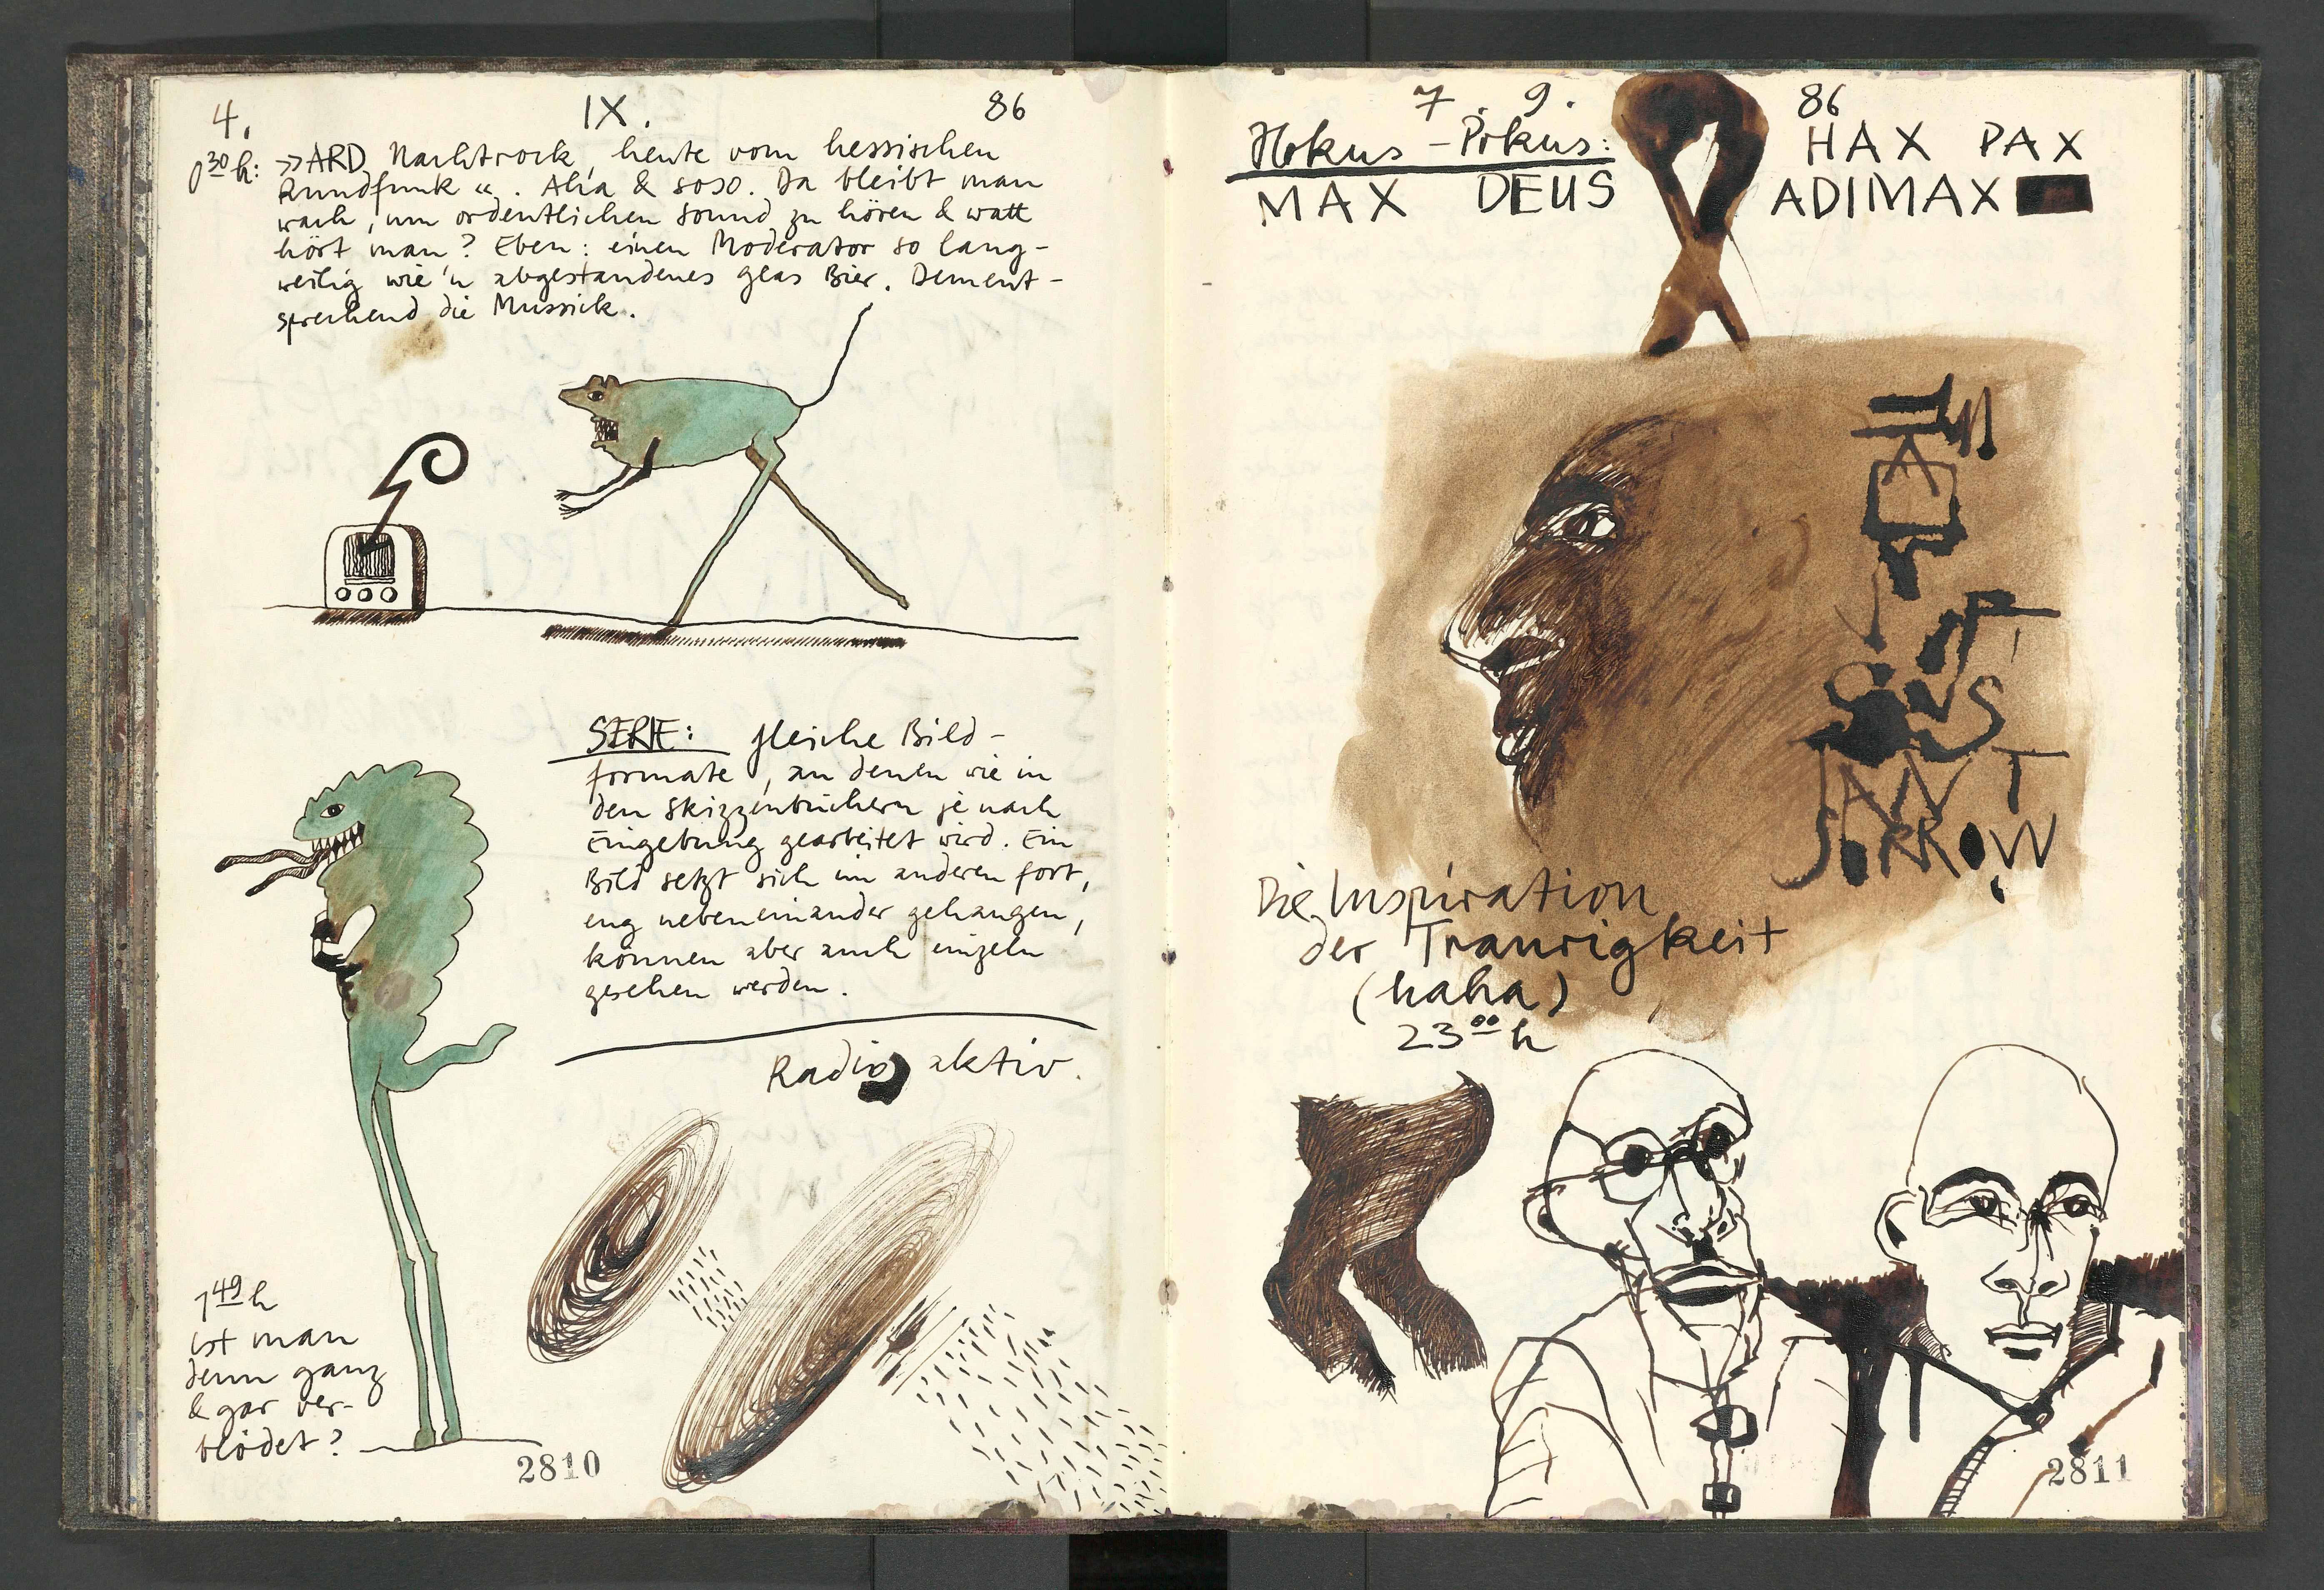 4. IX. 86
0³⁰h: >>ARD Nachtrock, heute vom hessischen
Rundfunk". Aha & soso. Da bleibt man
wach, um ordentlichen Sound zu hören & watt
hört man? Eben: einen Moderator so lang-
weilig wie'n abgestandenes Glas Bier. Dement-
sprechend die Mussick.
SERIE: gleiche Bild-
formate, an denen wie in
den Skizzenbüchern je nach
Eingebung gearbeitet wird. Ein
Bild setzt sich im anderen fort,
eng nebeneinander gehangen,
können aber auch einzeln
gesehen werden.
Radio aktiv.
1⁴⁹h
ist man
denn ganz
& gar ver-
blödet?
2810
7. 9. 86
Hokus-Pokus: HAX PAX
MAX DEUS ADIMAX
JANT
SORROW
Die Inspiration
der Traurigkeit
(haha)
23⁰⁰h
2811